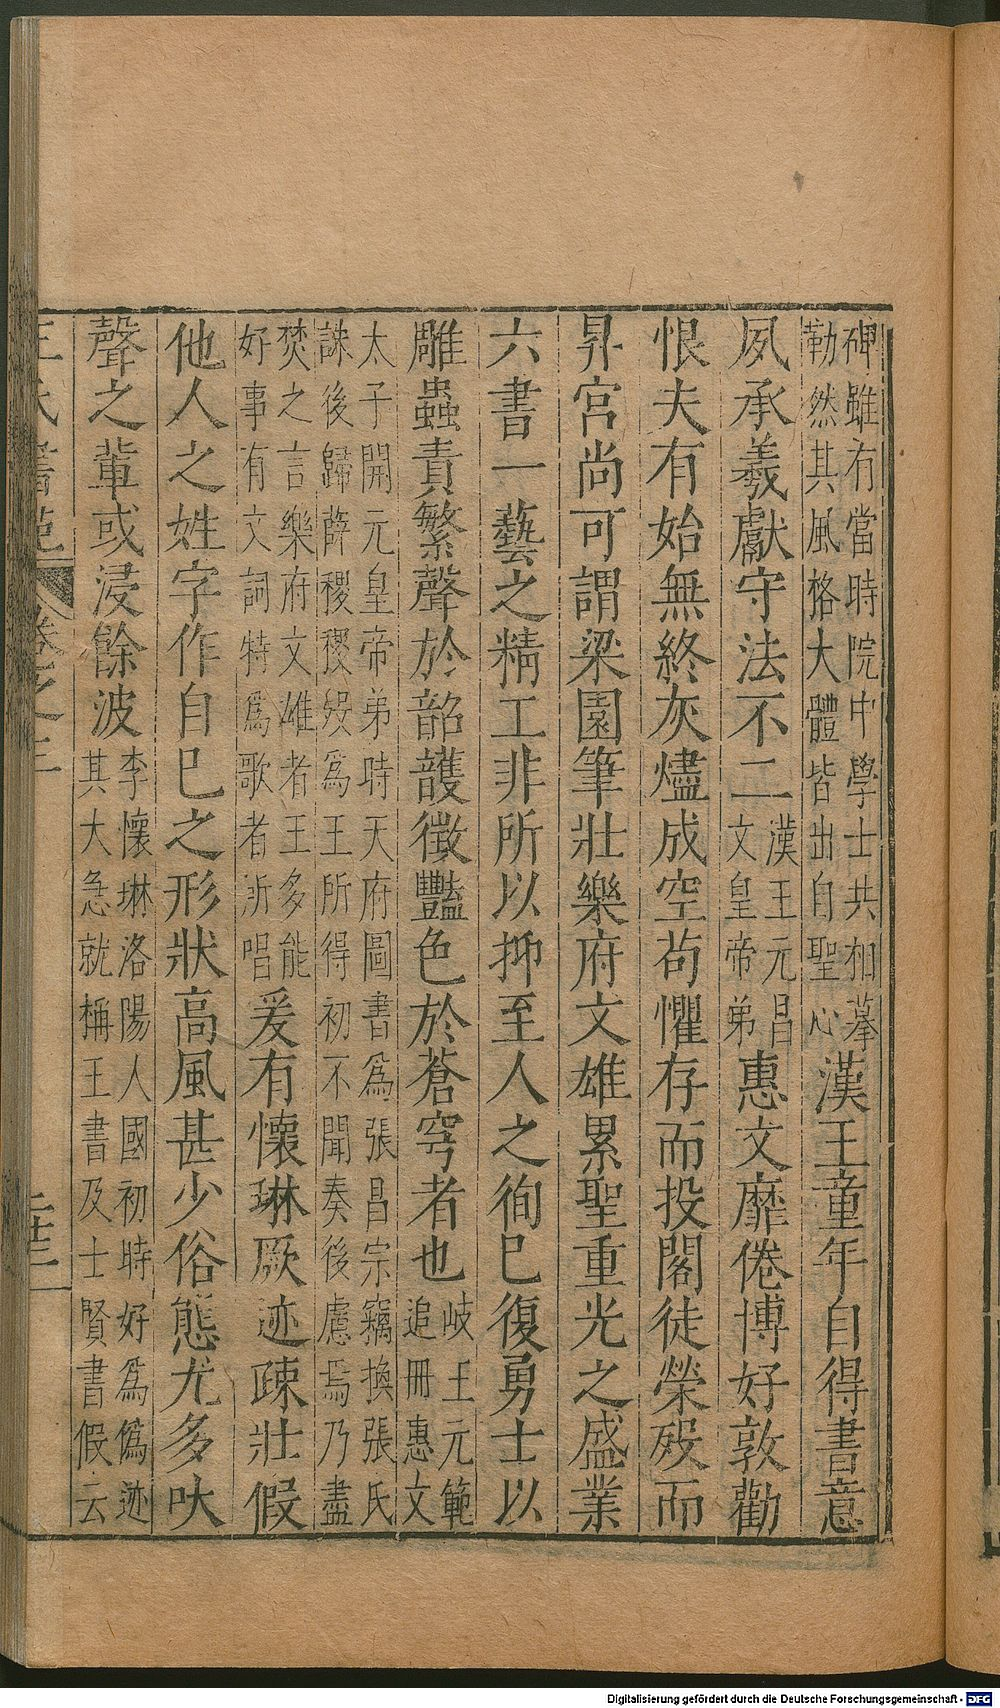 碑雖有當時院中學士共相摹
勒然其風格大體皆出自聖心
漢王童年自得書意
夙承羲獻守法不二
漢王元昌
文皇帝弟
惠文靡倦博好敦勸
恨夫有始無終灰燼成空苟懼存而投閣徒榮殁而
昇宮尚可謂梁園筆壯樂府文雄累聖重光之盛業
六書一藝之精工非所以抑至人之徇已復勇士以
雕蟲責繁聲於韶護徵豔色於蒼穹者也
岐王元範
追冊惠文
太子開元皇帝弟時天府圖書爲張昌宗竊換張氏
誅後歸薛稷稷歿爲王所得初不聞奏後慮焉乃盡
焚之言樂府文雄者王多能
好事有文詞特爲歌者所唱
爰有懷琳厥迹疎壯假
他人之姓字作自已之形狀高風甚少俗態尤多吠
聲之輩或浸餘波
李懷琳洛陽人國初時好爲僞迹
其大急就稱王書及士賢書假云
王氏書苑
卷之三